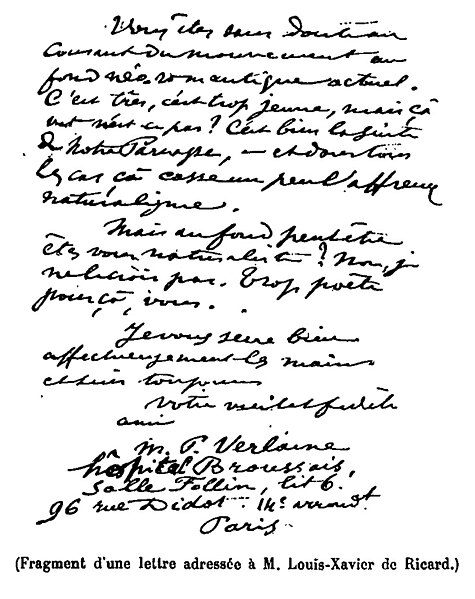 Vous êtes sans doute au
courant du mouvement au
fond néo-romantique actuel.
C'est très, c'est trop jeune, mais çà
vit n'est-ce pas ? C'est bien la suite
de notre Parnasse, — et dans tous
les cas çà casse un peu l'affreux
naturalisme.
Mais au fond peut-être
êtes vous naturaliste ? Non, je
ne le crois pas. Trop poète
pour çà, vous.
Je vous serre bien
affectueusement les mains
et suis toujours
votre vieil et fidèle
ami
à M. P. Verlaine
hôpital Broussais,
Salle Follin, lit 6.
96 rue Didot 14e arrondt
Paris
(Fragment d'une lettre adressée à M. Louis-Xavier de Ricard.)